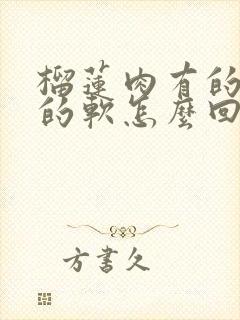 榴蓮肉有的
的軟怎麼回
方書久